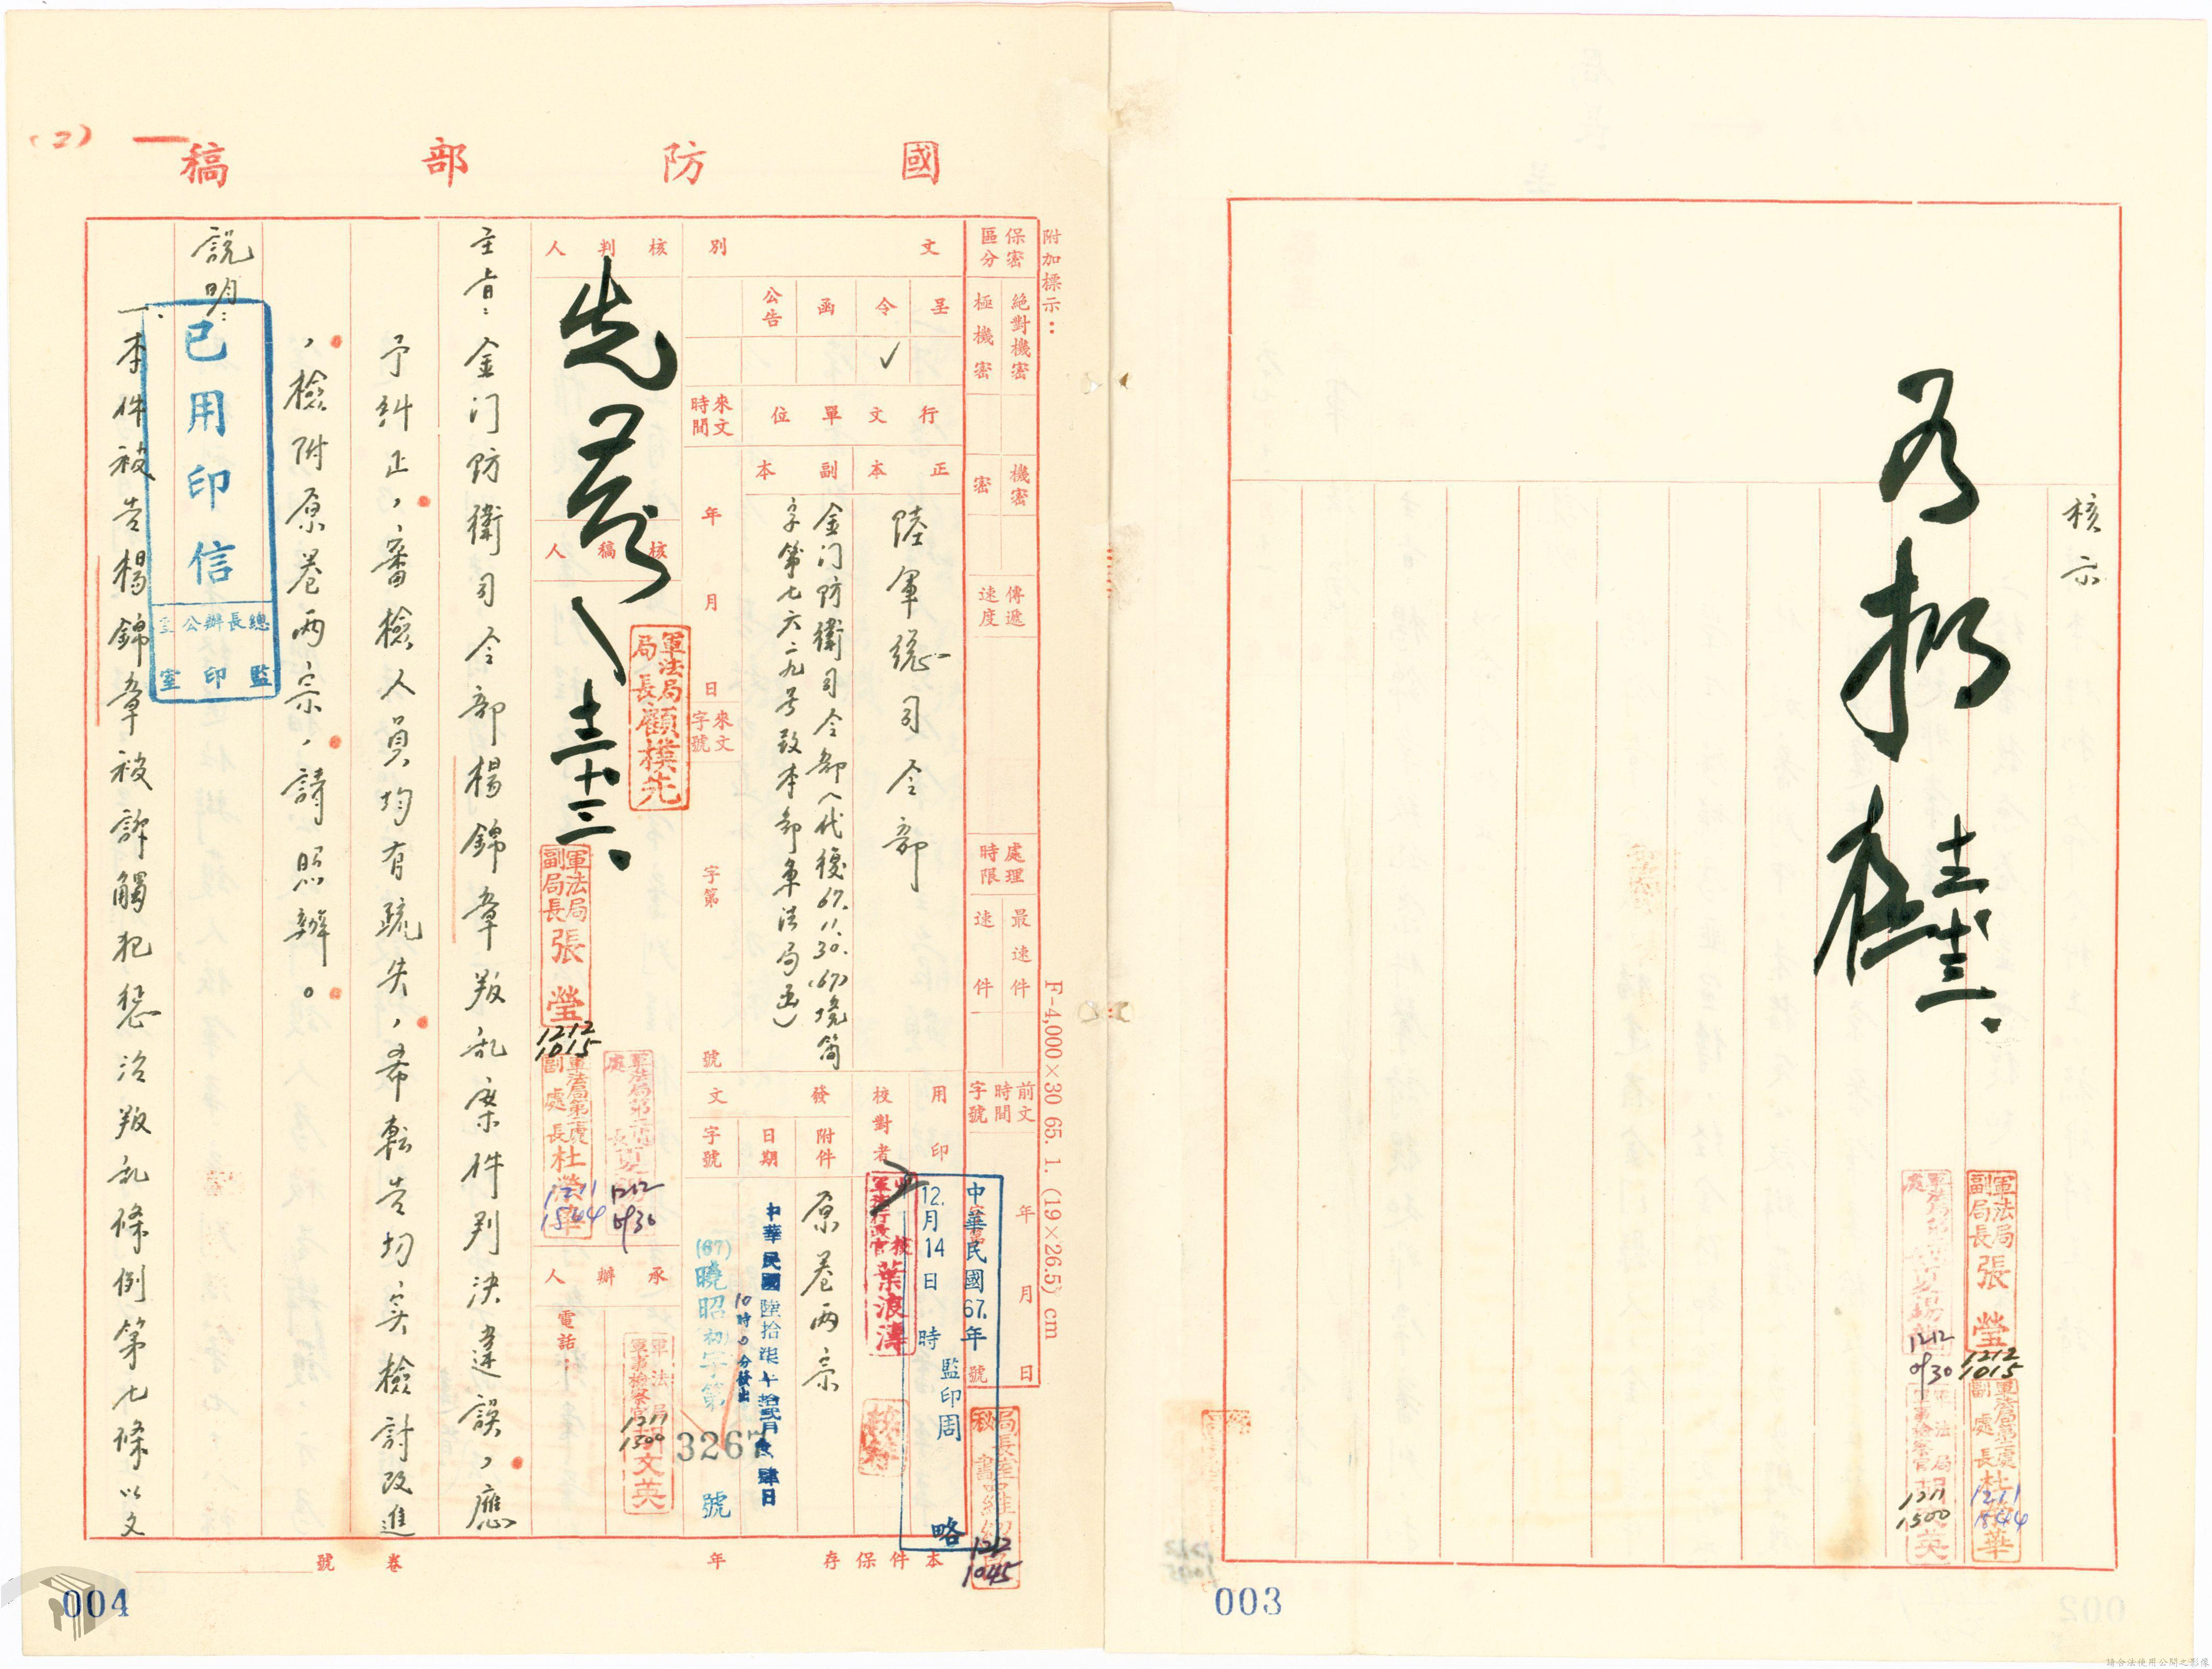 核示
軍法局副局長張瑩
1212
1015
1212
0930
軍法局第二處副處長杜榮華
1211
1544
軍法局軍事檢察官胡文英
1211
1500
003
國防部稿
(2)
附加標示：
保密區分
絕對機密
極機密
機密
密
傳遞速度
處理時限
最速件
速件
前文時間字號
年月日
號
F-4,000×30 65. 1. (19×26.5) cm
文別
呈
令 ✓
函
公告
行文單位
正本
陸軍總司令部
副本
金门防衛司令部（代復67.11.30.(67)境简
字第七六二九号致本部軍法局函）
來文時間
年月日
來文字號
字第
號
用印
中華民國67.年
12.月14日
時
監印周
略
校對者
葉浪濤
發文
附件
原卷两宗
日期
中華民國陸拾柒年拾貳月拾肆日
10時0分發出
字號
(67)曉昭初字第
3267
號
核判人
先發
十二十三
核稿人
軍法局局長顧樸先
軍法局副局長張瑩
1212
1015
軍法局第二處副處長杜榮華
1211
1544
1212
0930
承辦人
電話：
軍法局軍事檢察官胡文英
1211
1500
1212
1045
主旨：金门防衛司令部楊錦章叛乱案件判决違誤，應
予糾正，審檢人員均有疏失，希転告切实檢討改進
，檢附原卷两宗，請照辦。
說明：
一、本件被告楊錦章被訴觸犯惩治叛乱條例第七條以文
已用印信
總長辦公室
監印室
本件保存
年
卷
號
004
請合法使用公開之影像